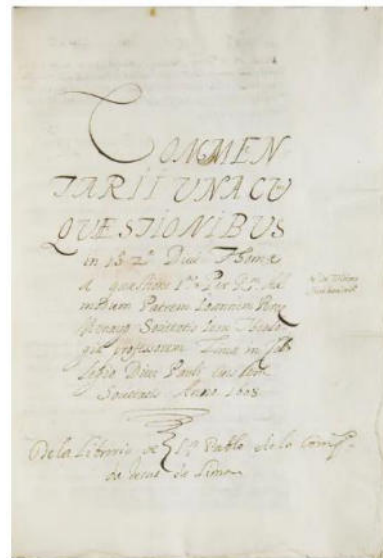 COMMEN
TARII UNA CU
QUESTIONIBUS
in 1.2ᵃᵉ Divi Thomæ
a questione 1ᵃ. Per R.ᵐ Ad
modum Patrem Joannem
Societatis Iesu Theolo
giæ professorem Limæ in Col
legio Divi Pauli eius dem
Societatis Anno 1608
De la Libreria de S. Pablo de la Comp.ᵃ
de Jesus de Lima